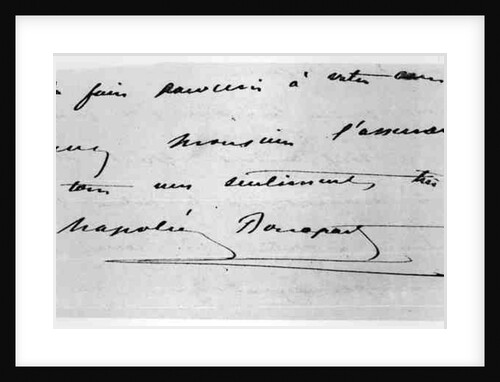 fais parvenir à votre
Monsieur l'assurance
tous mes sentiments, très
Napoléon Bonaparte